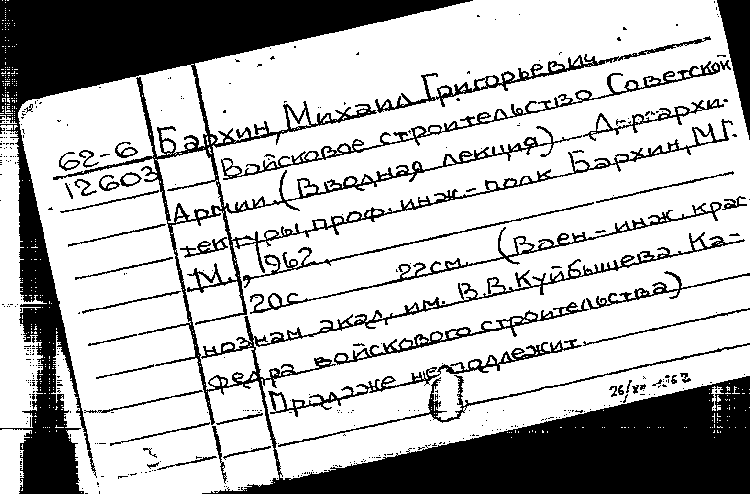 62-6
12603
Бархин, Михаил Григорьевич.
Войсковое строительство Советской
Армии. (Вводная лекция). Д-р архи-
тектуры, проф. инж.-полк Бархин, М.Г.
М., 1962.
20с. 22см. (Воен.-инж. крас
нознам. акад. им. В.В. Куйбышева. Ка-
федра войскового строительства)
Продаже не подлежит.